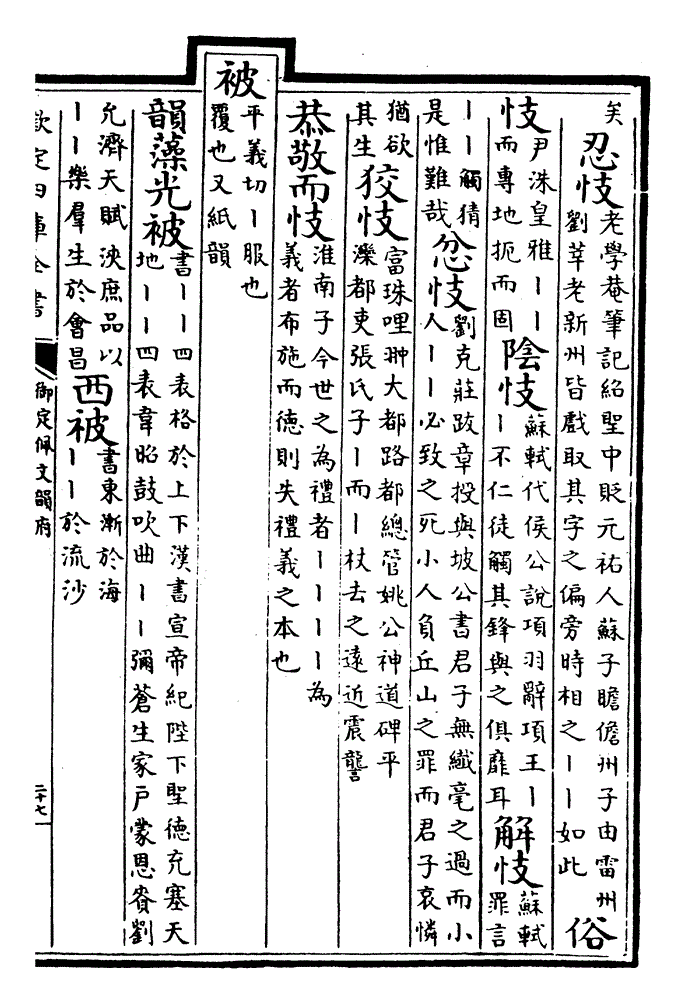 矣忍忮老學菴筆記紹聖中貶元祐人蘇子瞻儋州子由雷州劉莘老新州皆戲取其字之偏旁時相之丨丨如此俗
忮尹洙皇雅丨丨而專地扼而固陰忮蘇軾代侯公說項羽辭項王丨丨不仁徒觸其鋒與之俱靡耳解忮蘇軾罪言
丨丨觸猜是惟難哉忿忮劉克莊跋章授與坡公書君子無纎毫之過而小人丨丨必致之死小人負丘山之罪而君子哀憐
猶欲其生狡忮富珠哩翀大都路都總管姚公神道碑平灤都吏張氏子丨而丨杖去之遠近震讋
恭敬而忮淮南子今世之為禮者丨丨丨丨為義者布施而德則失禮義之本也
被平義切丨服也覆也又紙韻
韻藻光被書丨丨四表格於上下漢書宣帝紀陛下聖德充塞天地丨丨四表韋昭鼓吹曲丨丨彌蒼生家戶蒙恩賚劉
允濟天賦泱庶品以丨丨樂羣生於會昌西被書東漸於海丨丨於流沙
欽定四庫全書
御定佩文韻府
二十七